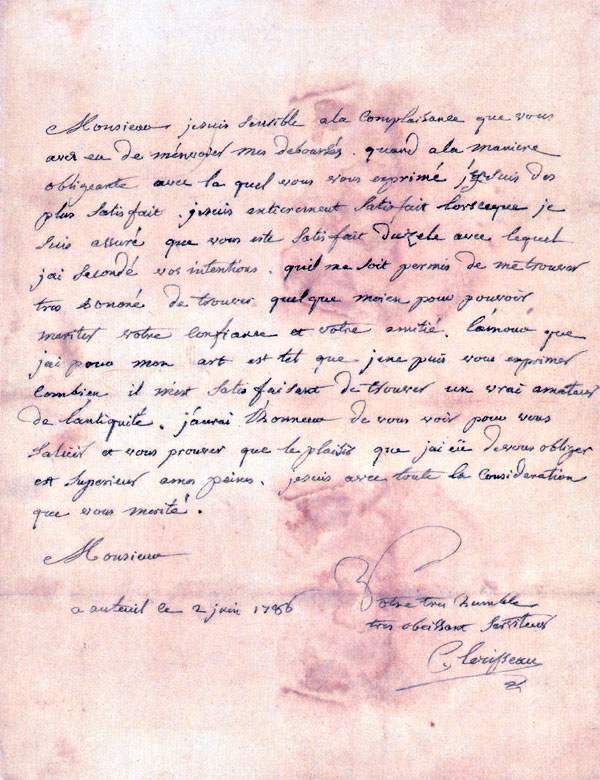 Monsieur jesuis sensible ala Complaisance que vous
avez eu de m'envoyer mes deboursés. quand ala maniere
obligeante avec la quel vous vous exprimé jesuis des
plus satisfait. jesuis entierement satisfait lorsceque je
suis assuré que vous este satisfait duzele avec lequel
jai secondé vos intentions. quil me soit permis de me trouver
tres honoré de trouver quelque moien pour pouvoir
meriter votre Confiance et votre amitié. L'amour que
j'ai pour mon art est tel que jene puis vous exprimer
Combien il m'est satisfaisant de trouver un vrai amateur
de l'antiquité. jaurai l'honneur de vous voir pour vous
saluër et vous prouver que le plaisir que jai eü de vous obliger
est superieur ames peines. jesuis avec toute la Consideration
que vous merité.
Monsieur
a auteuil le 2 juin 1786
Votre tres humble
tres obeissant serviteur
C. Lerisseau